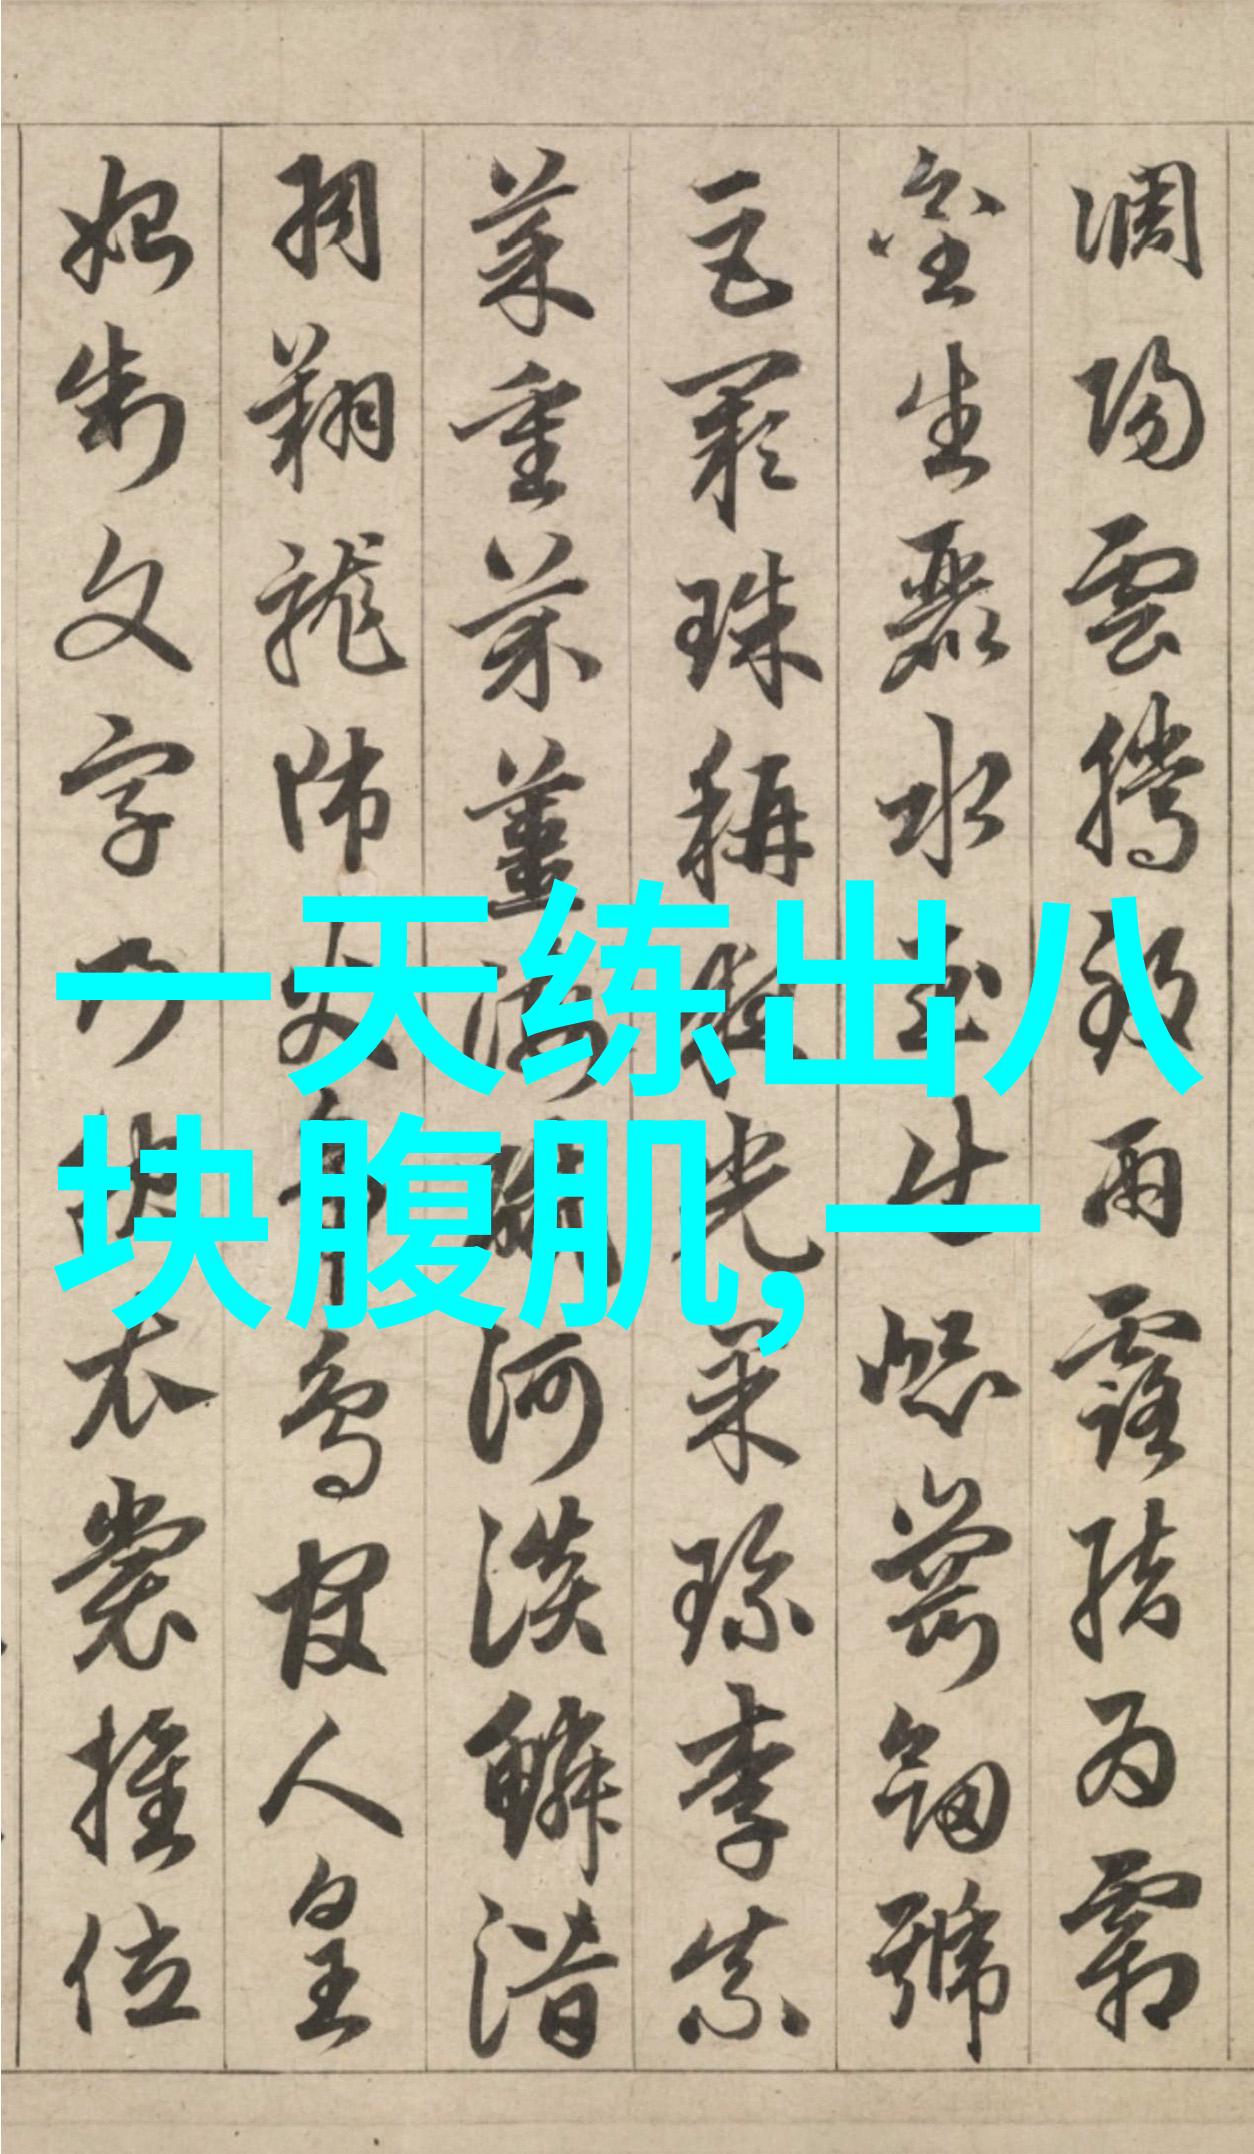 調陽雲騰致雨露結為霜
金生麗水玉出崑岡劍號
巨闕珠稱夜光果珍李柰
菜重芥薑海鹹河淡鱗潛
羽翔龍師火帝鳥官人皇
始制文字乃服衣裳推位
一天练出八
块腹肌,一